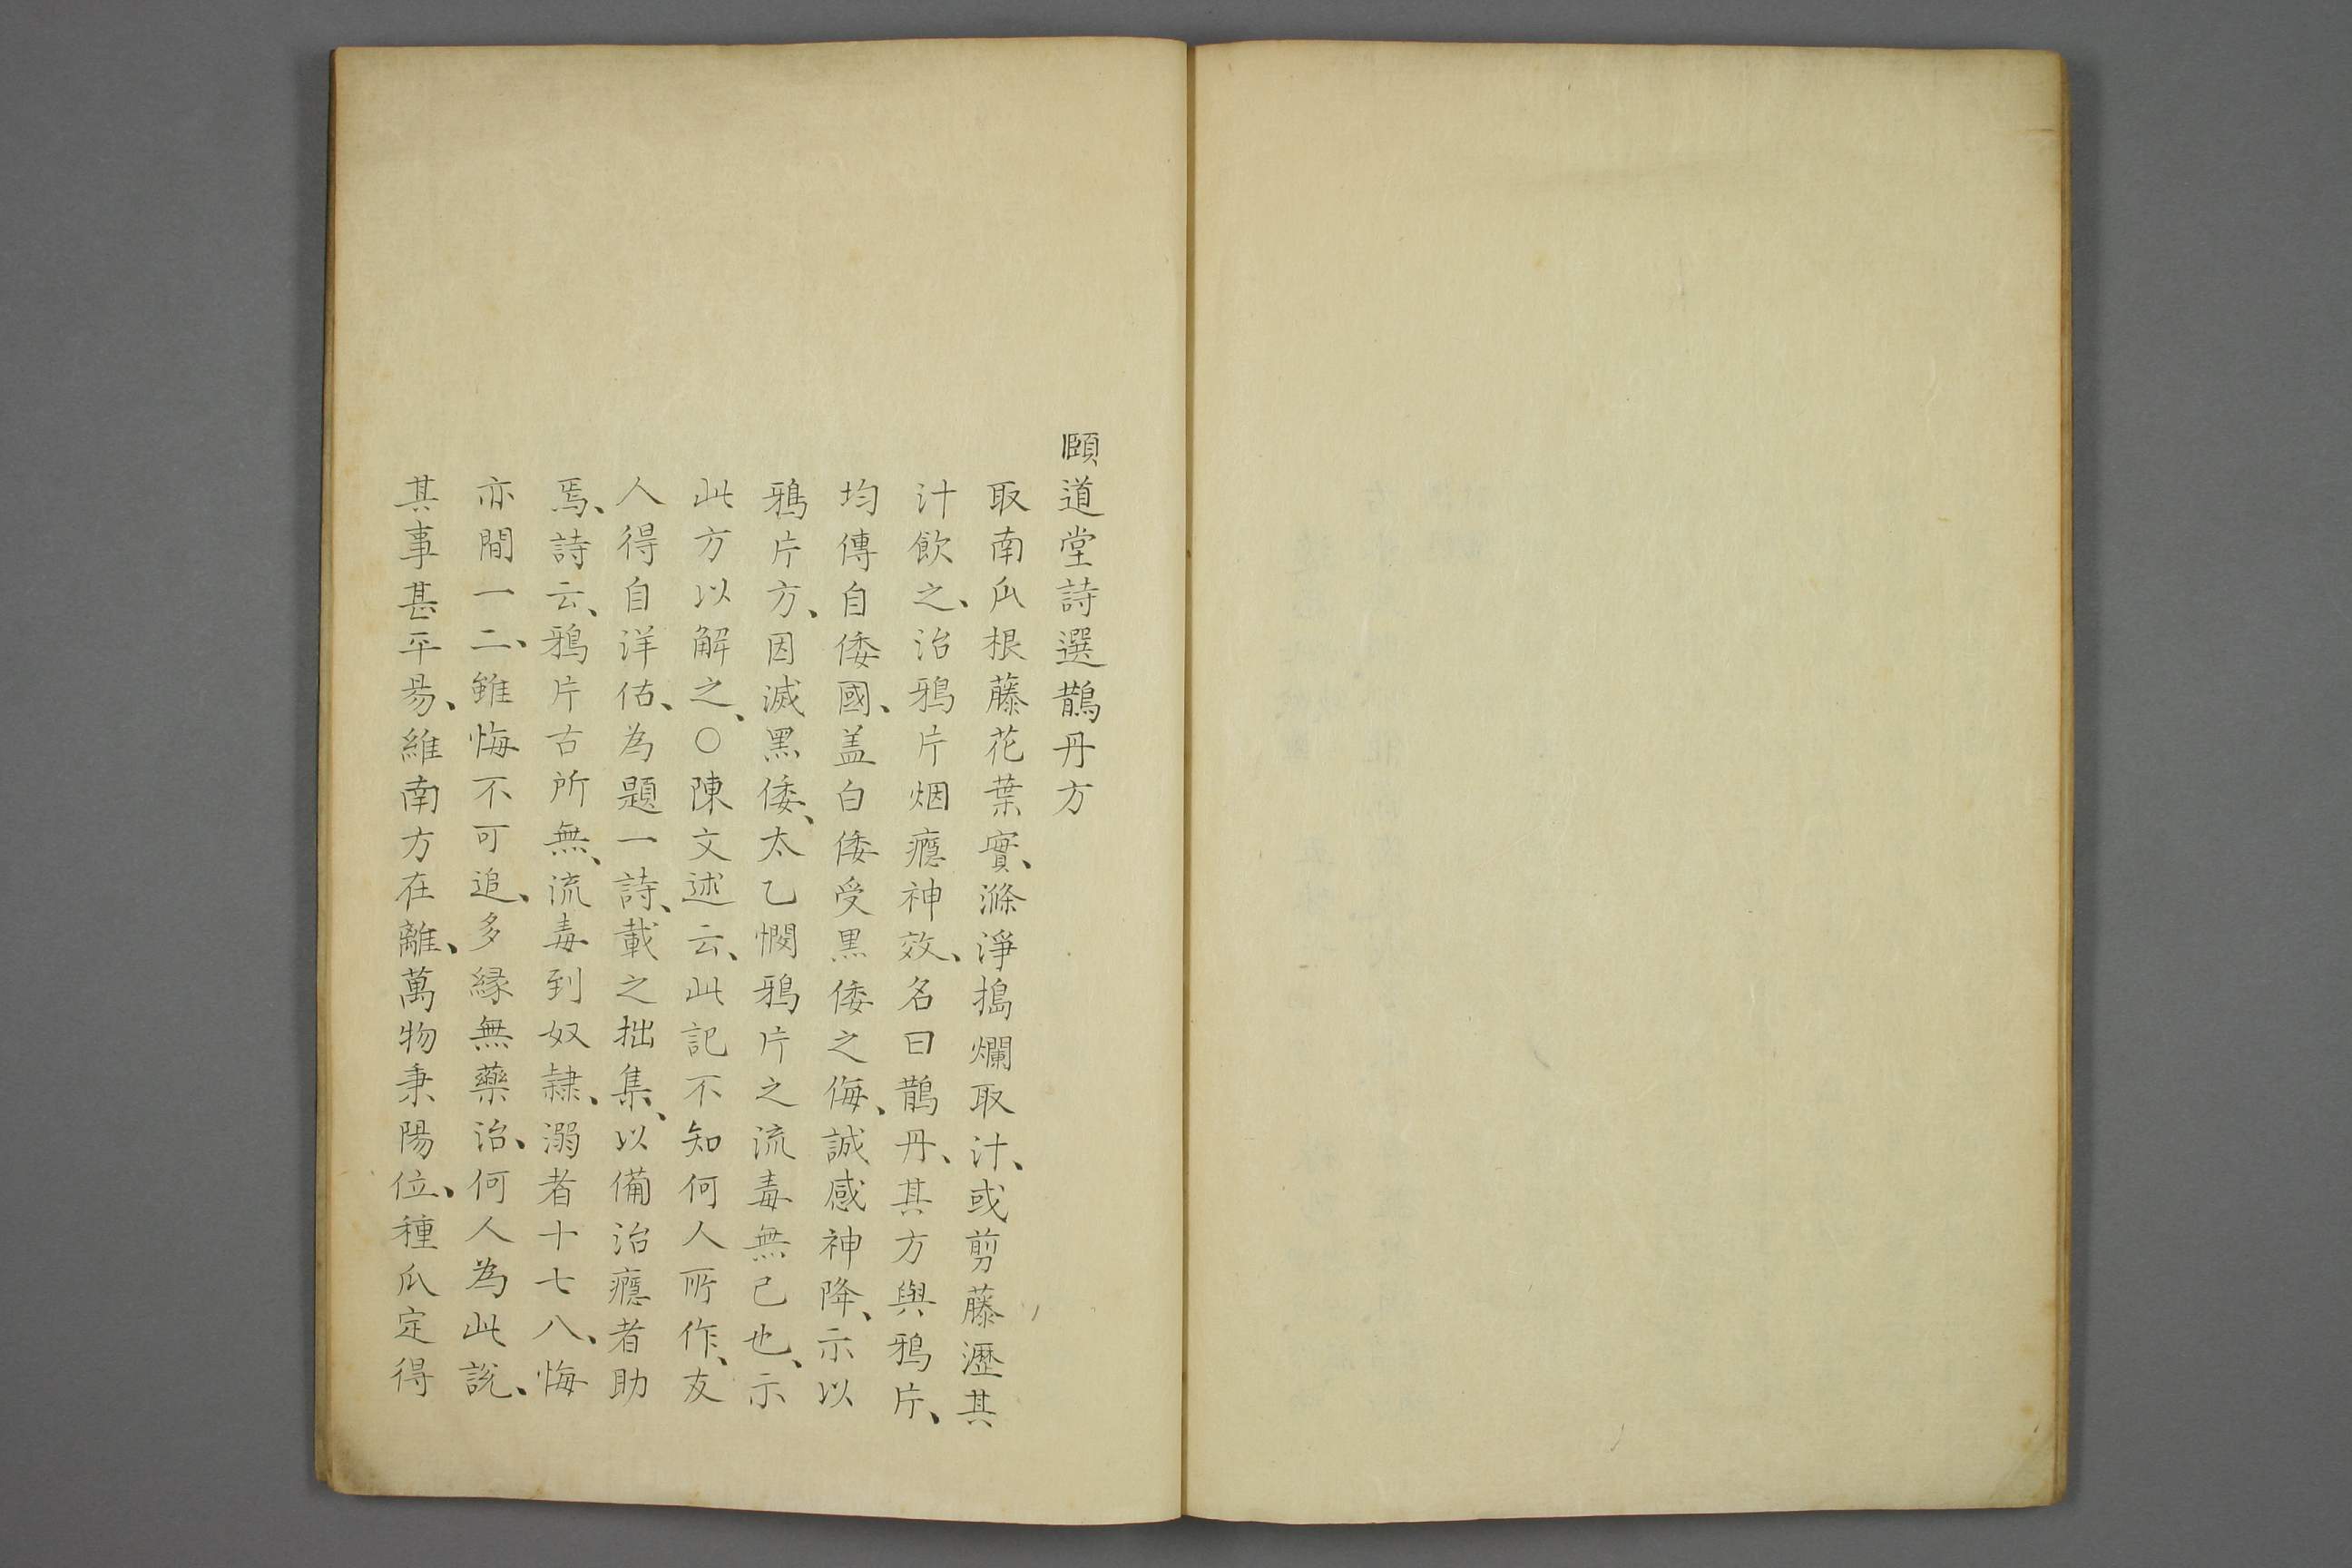 頤道堂詩選鵲丹方
取南瓜根藤花葉實、滌淨搗爛取汁、或剪藤瀝其
汁飲之、治鴉片烟癮神效、名曰鵲丹、其方與鴉片、
均傳自倭國、盖白倭受黒倭之侮、誠感神降、示以
鴉片方、因滅黒倭、太乙憫鴉片之流毒無已也、示
此方以解之、○陳文述云、此記不知何人所作、友
人得自洋估、為題一詩、載之拙集、以備治癮者助
焉、詩云、鴉片古所無、流毒到奴隸、溺者十七八、悔
亦間一二、雖悔不可追、多縁無藥治、何人為此說、
其事甚平易、維南方在離、萬物秉陽位、種瓜定得